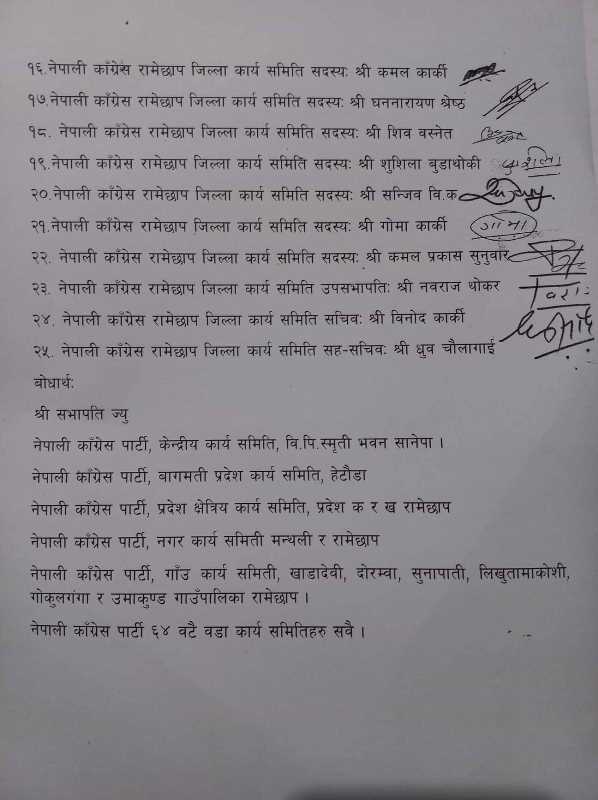 १६.नेपाली काँग्रेस रामेछाप जिल्ला कार्य समिति सदस्यः श्री कमल कार्की
१७.नेपाली काँग्रेस रामेछाप जिल्ला कार्य समिति सदस्यः श्री घननारायण श्रेष्ठ
१८. नेपाली काँग्रेस रामेछाप जिल्ला कार्य समिति सदस्यः श्री शिव वस्नेत
१९.नेपाली काँग्रेस रामेछाप जिल्ला कार्य समिति सदस्यः श्री शुशिला बुडाथोकी
२०.नेपाली काँग्रेस रामेछाप जिल्ला कार्य समिति सदस्यः श्री सन्जिव वि.क
२१.नेपाली काँग्रेस रामेछाप जिल्ला कार्य समिति सदस्यः श्री गोमा कार्की गोमा
२२. नेपाली काँग्रेस रामेछाप जिल्ला कार्य समिति सदस्यः श्री कमल प्रकास सुनुवार
२३. नेपाली काँग्रेस रामेछाप जिल्ला कार्य समिति उपसभापतिः श्री नवराज थोकर
२४. नेपाली काँग्रेस रामेछाप जिल्ला कार्य समिति सचिवः श्री विनोद कार्की
२५. नेपाली काँग्रेस रामेछाप जिल्ला कार्य समिति सह-सचिवः श्री ध्रुव चौलागाई
बोधार्थः
श्री सभापति ज्यु
नेपाली काँग्रेस पार्टी, केन्द्रीय कार्य समिति, वि.पि.स्मृती भवन सानेपा ।
नेपाली काँग्रेस पार्टी, बागमती प्रदेश कार्य समिति, हेटौडा
नेपाली काँग्रेस पार्टी, प्रदेश क्षेत्रिय कार्य समिति, प्रदेश क र ख रामेछाप
नेपाली काँग्रेस पार्टी, नगर कार्य समिती मन्थली र रामेछाप
नेपाली काँग्रेस पार्टी, गाँउ कार्य समिती, खाडादेवी, दोरम्वा, सुनापाती, लिखुतामाकोशी,
गोकुलगंगा र उमाकुण्ड गाउँपालिका रामेछाप ।
नेपाली काँग्रेस पार्टी ६४ वटै वडा कार्य समितिहरु सवै ।